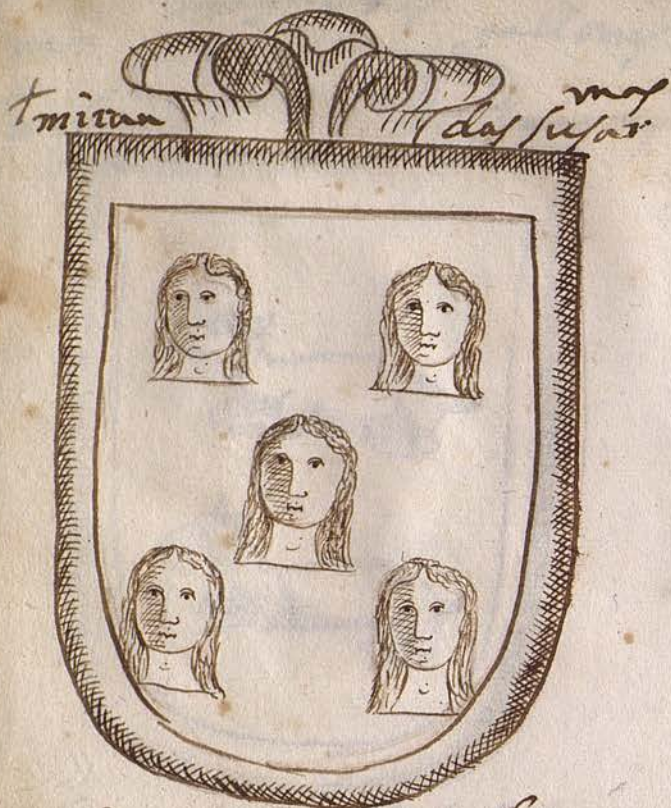 + miran das susar
mas